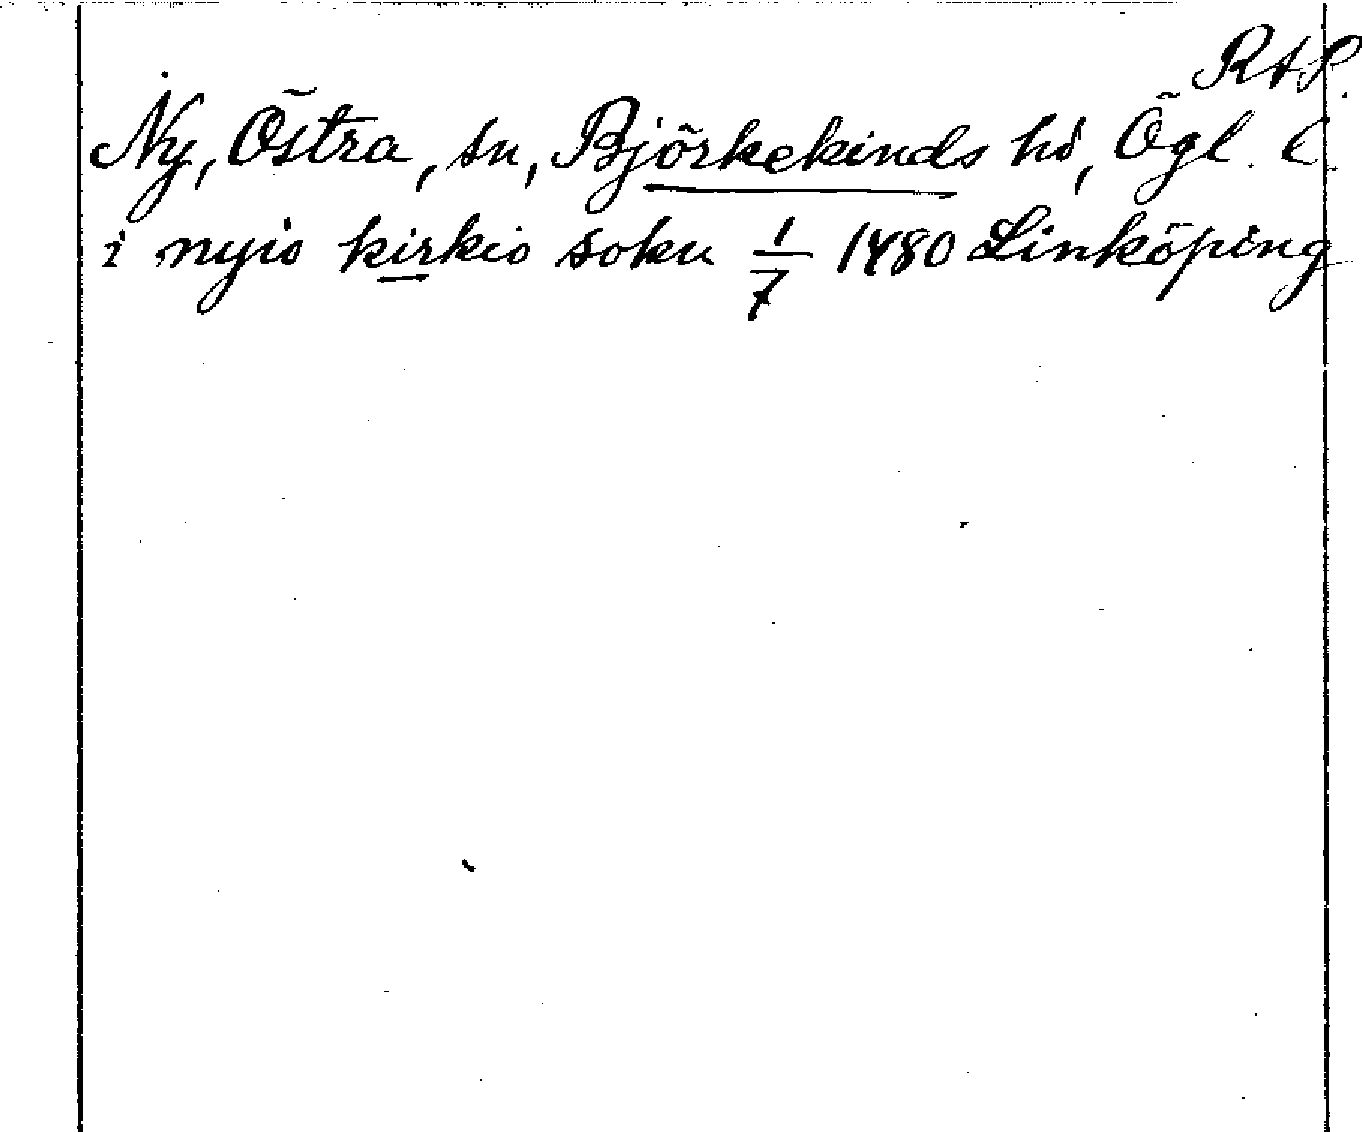 RAP.
Ny, Östra, sn, Björkekinds hd, Ögl. l.
i nyis kirkio sokn 1/7 1480 Linköping